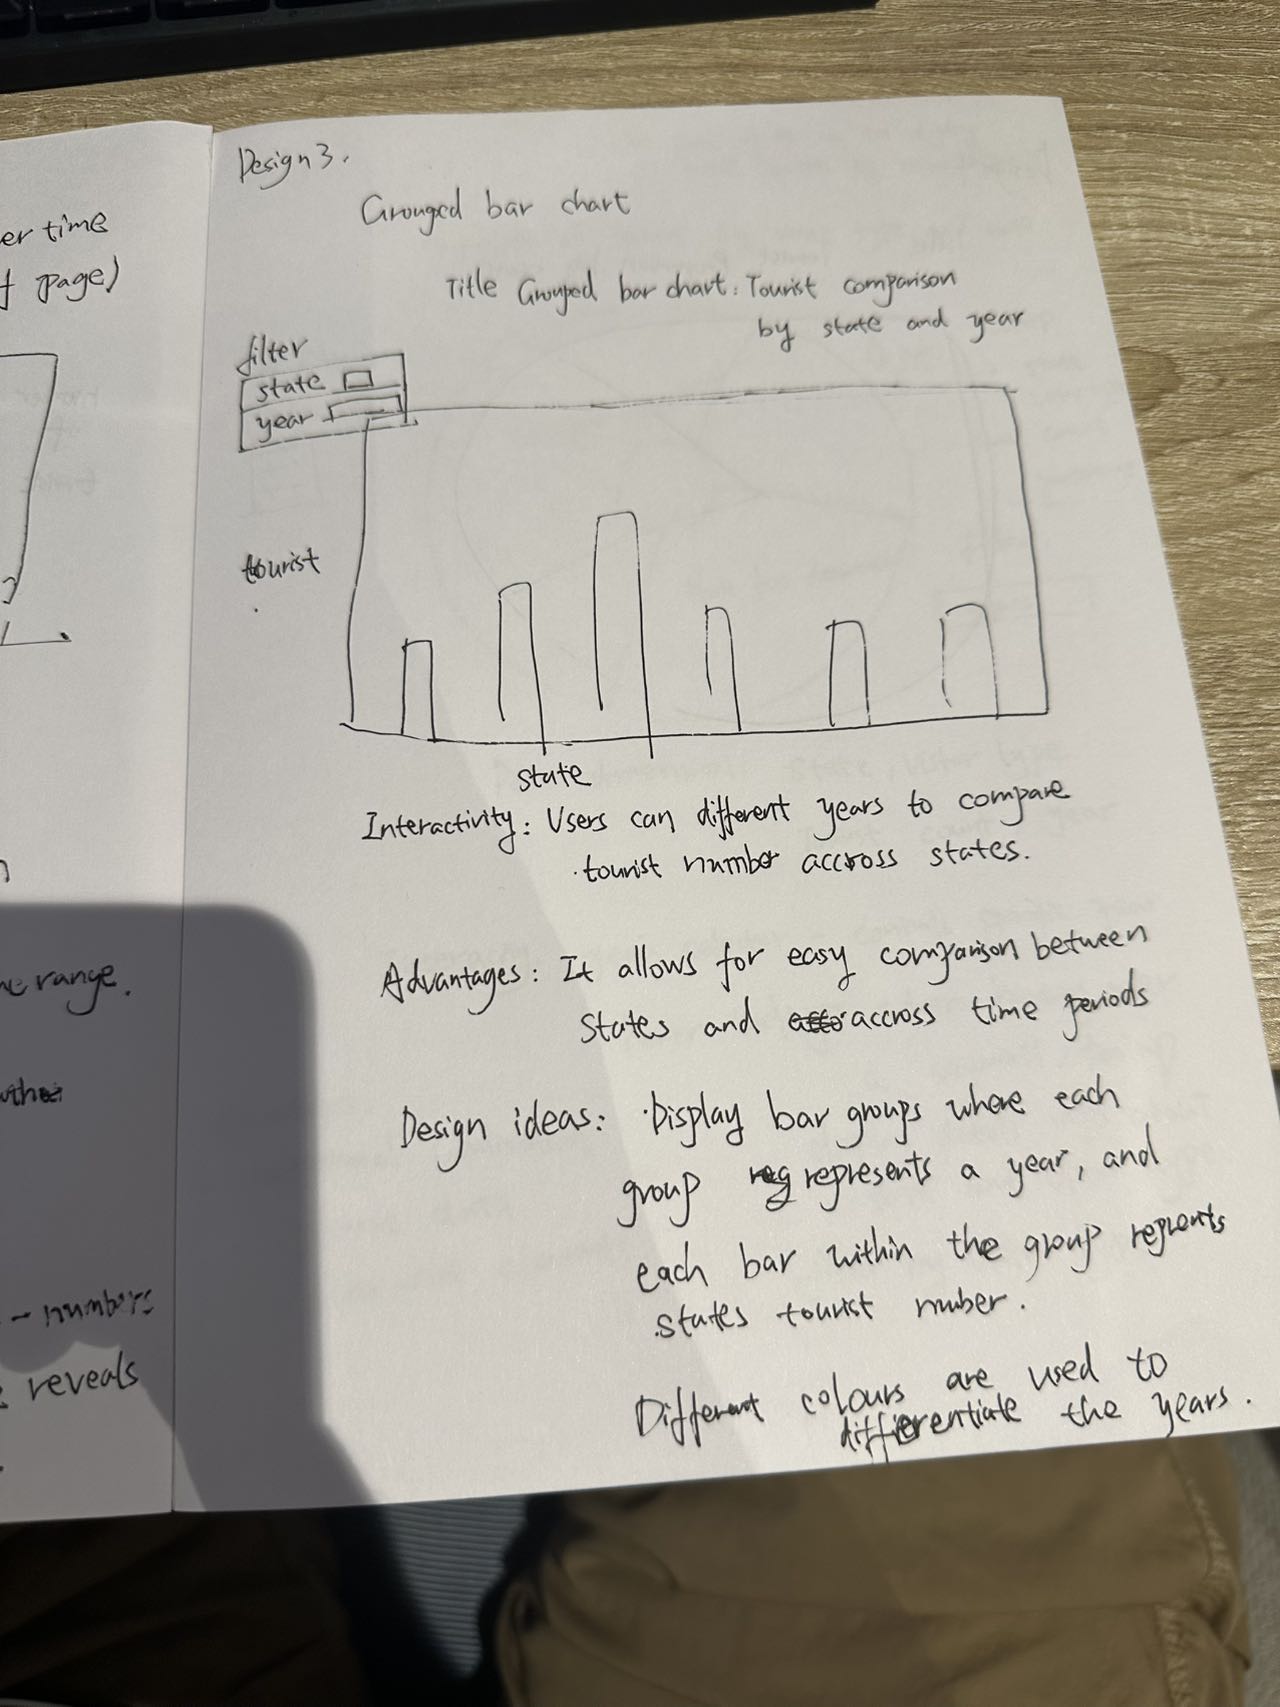 er time
page)
range.
numbers
reveals
Design 3.
Grouged bar chart
Title Grouped bar chart: Tourist comparison
by state and year
filter
state
year
tourist
state
Interactivity: Users can different years to compare
tourist number accross states.
Advantages: It allows for easy comparison between
States and accross time periods
Design ideas: Display bar groups where each
group represents a year, and
each bar within the group reprents
states tourist number.
Different colours are used to
differentiate the years.